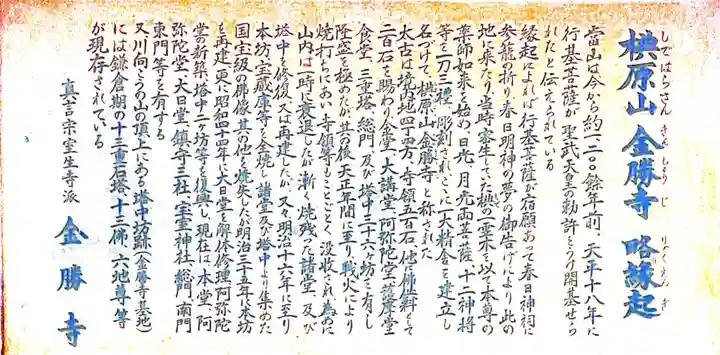 椣原山 金勝寺 略縁起
しではらさん きんしょうじ りゃくえんぎ
當山は今から約一二〇〇餘年前、天平十八年に
行基菩薩が聖武天皇の勅許をうけ開基せら
れたと伝えられている
縁起によれば行基菩薩が宿願あって春日神祠に
参籠し祈り、春日明神の夢の御告げにより此の
地に来たり当時寄生していた椣の一霊木を以て本尊の
薬師如来を始め日光、月光両菩薩、十二神将
等を一刀三禮、彫刻されここに一大精舎を建立し
名づけて、椣原山金勝寺と称された
太古は境内地四丁四方、寺領五百石他に佛供料として
二百石を賜わり金堂、大講堂、阿弥陀堂、護摩堂
食堂、三重塔、総門、及び塔中三十六ヶ坊を有し
隆盛を極めたが、其の後天正年間に至り、戦火により
焼打ちにあい寺領等もことごとく没収され為めに
山内は一時に衰退したが漸く焼残った諸堂、及び
塔中を修復又は再建したが、又々明治十六年に至り
本坊、宝蔵庫等を全焼し諸堂及び塔中より集めた
国宝級の佛像其の他を焼失したが明治三十五年に本坊
を再建更に昭和四十四年に大日堂を解体修理阿弥陀
堂の新築、塔中二ヶ坊等を復興し、現在は、本堂、阿
弥陀堂、大日堂、鎮守三社、宝重神社、総門、南門
東門等を有する
又川向こうの山の頂上にある塔中坊跡(金勝寺墓地)
には鎌倉期の十三重石塔、十三佛、六地尊等
が現存されている
真言宗室生寺派
金勝寺